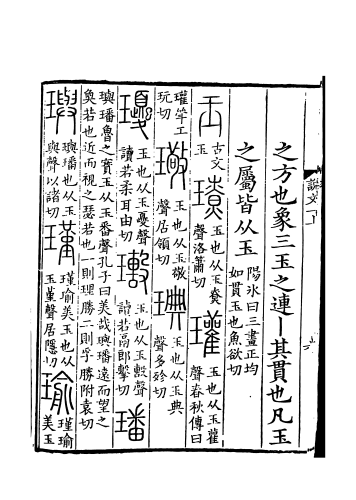 之方也象三玉之連丨其貫也凡玉
之屬皆从玉
陽冰曰三畫正均
如貫玉也魚欲切
古文
玉
璙
玉也从玉尞
聲洛蕭切
瓘
玉也从玉雚
聲春秋傳曰
瓘斝工
玩切
璥
玉也从玉敬
聲居領切
琠
玉也从玉典
聲多殄切
瓇
玉也从玉夒聲
讀若柔耳由切
𤪎
玉也从玉毄聲
讀若鬲郎擊切
璠
璵璠魯之寶玉从玉番聲孔子曰美哉璵璠遠而望之
奐若也近而視之瑟若也一則理勝二則孚勝附袁切
璵
璵璠也从玉
與聲以諸切
瑾
瑾瑜美玉也从
玉堇聲居隱切
瑜
瑾瑜
美玉
說文一上
六